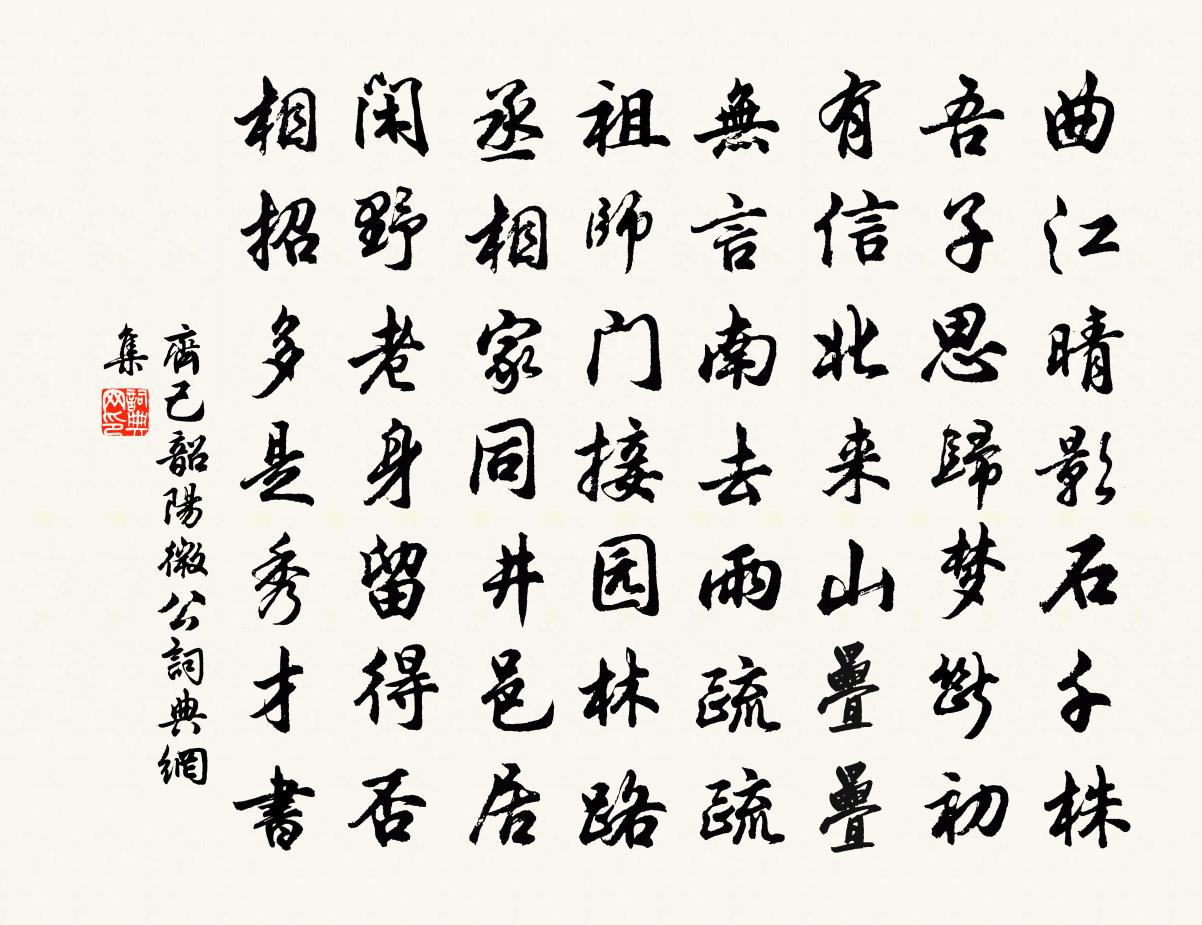 曲江晴影石千株
吾子思歸梦断初
有信北来山疊疊
無言南去雨疏疏
祖師门接园林路
丞相家同井邑居
闲野老身留得否
相招多是秀才書
齊己韶陽微公詞典網
集
詞典網印